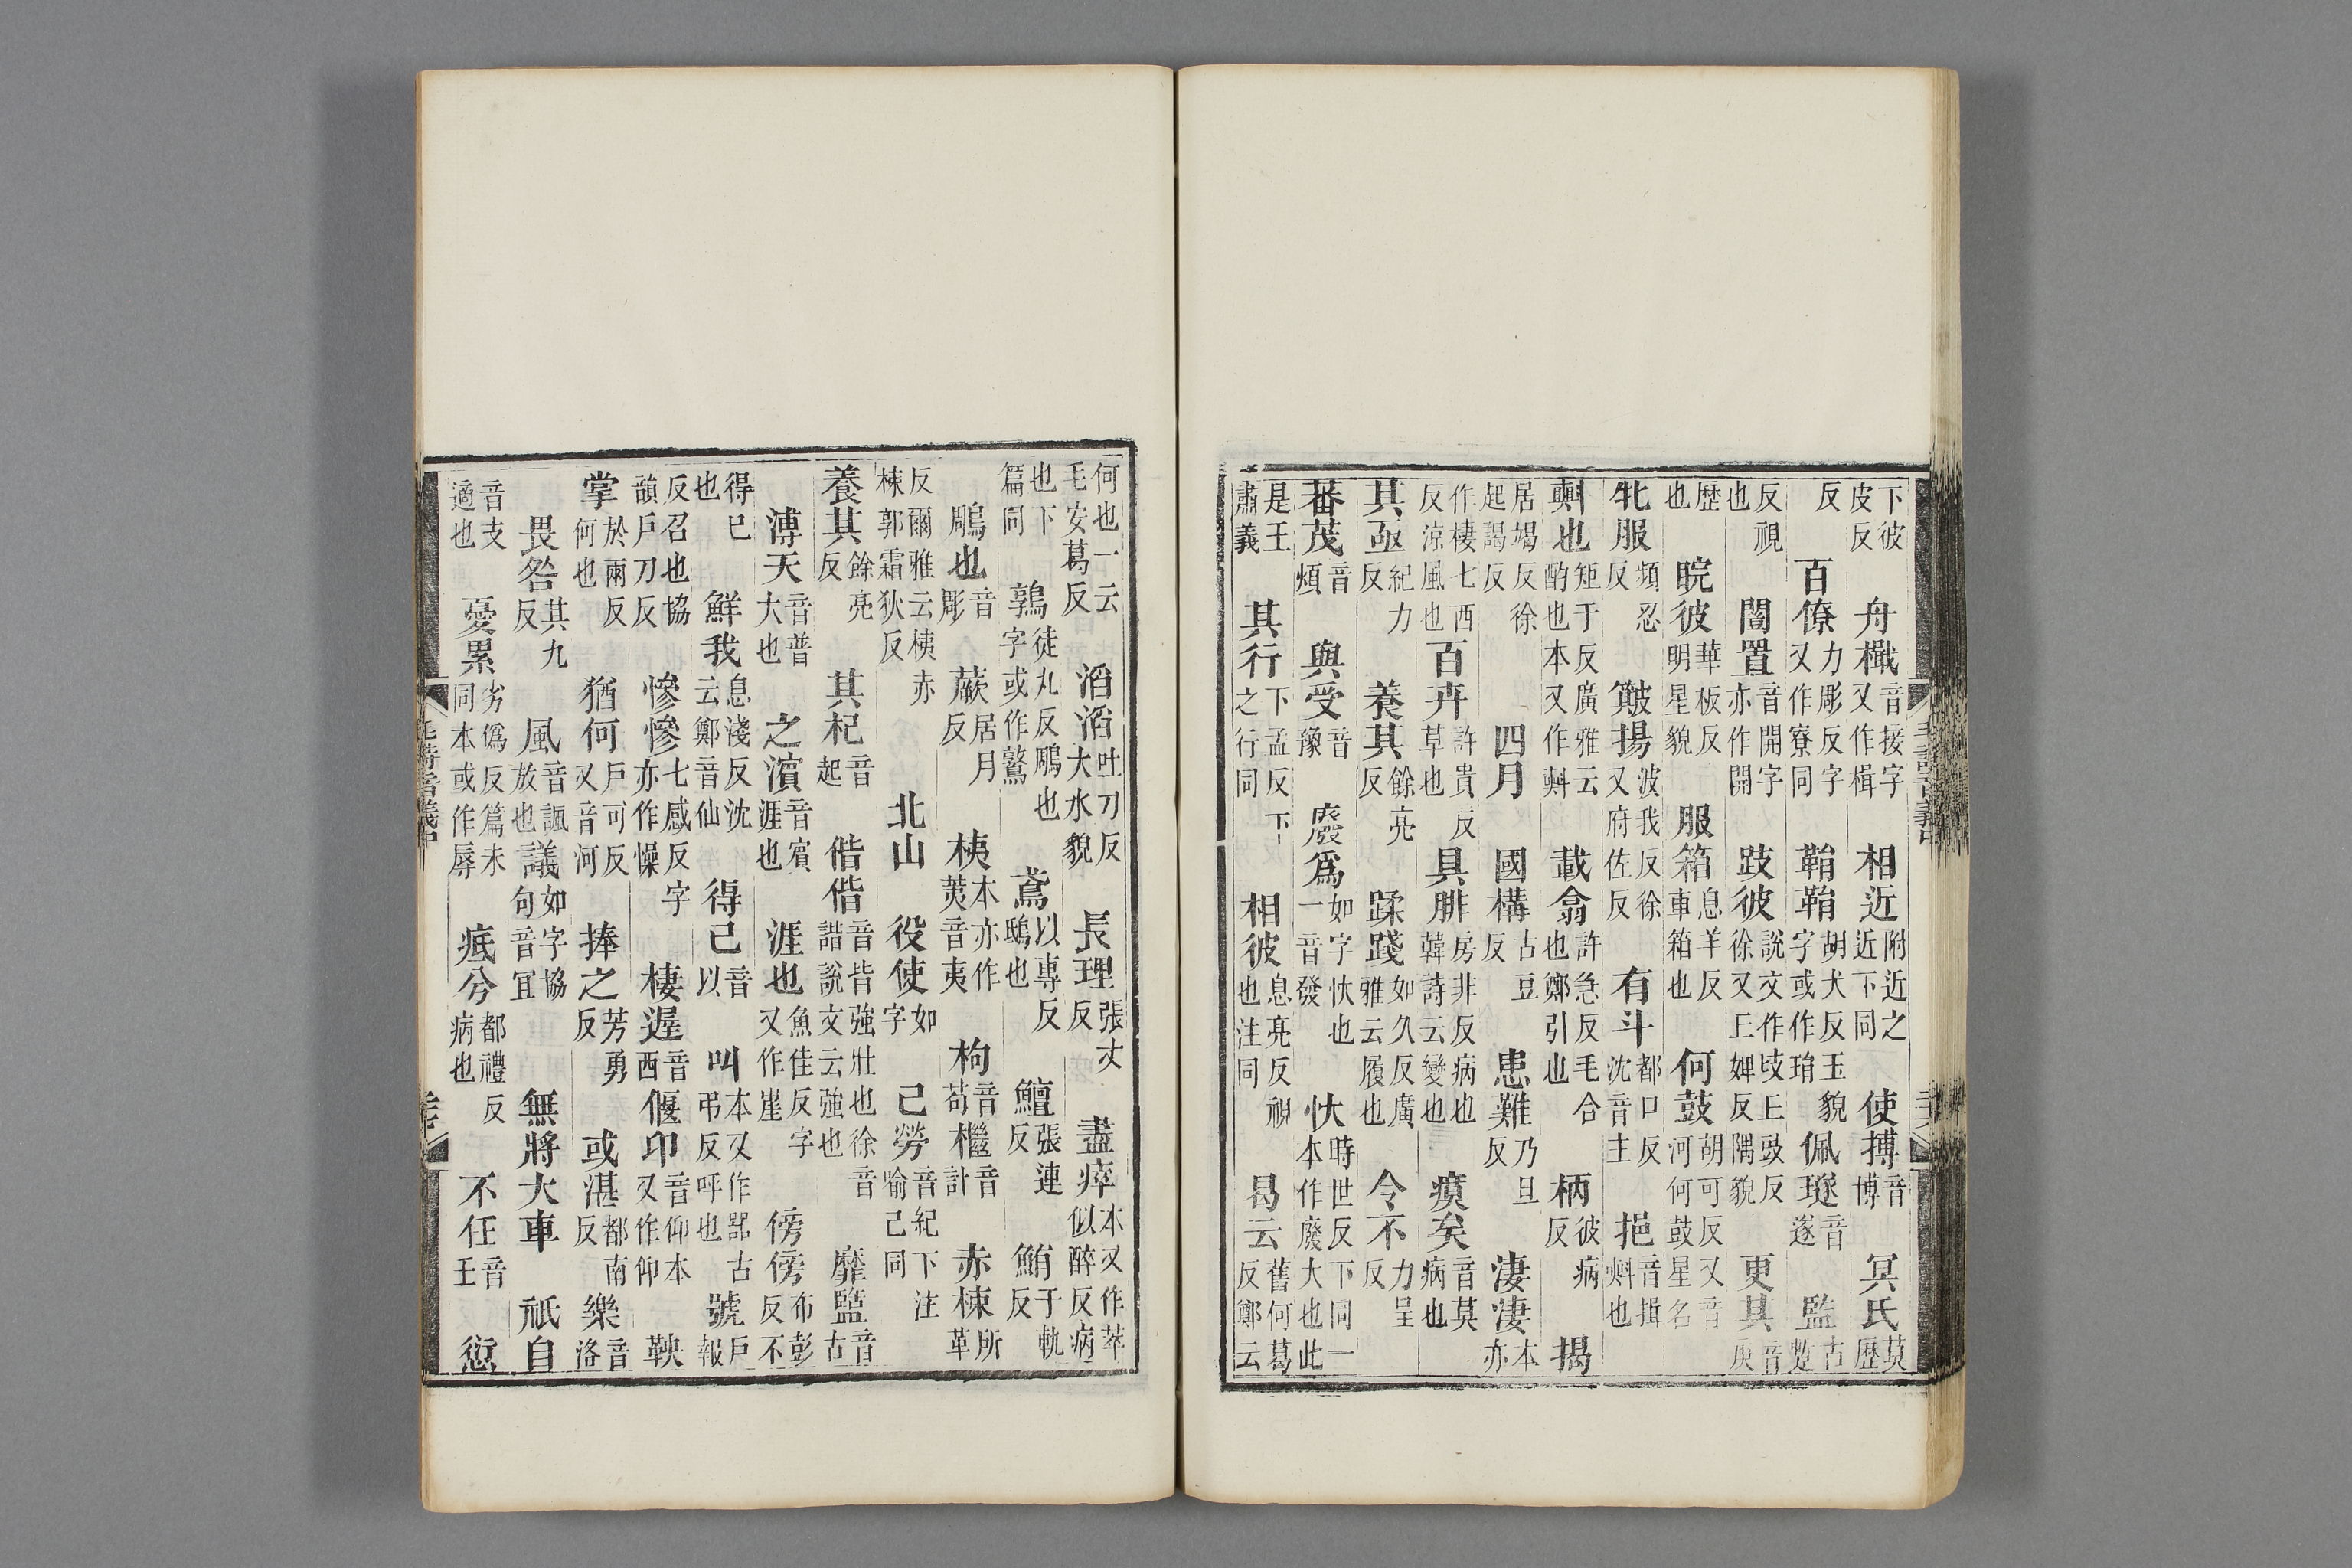 下彼皮反　舟檝音接字又作楫　相近附近之近下同　使搏音博　冥氏莫歷
反　百僚力彫反字又作寮同　鞙鞙胡犬反字或作琄玉貌　佩璲音遂　監古蹔
反視也　闓置音開字亦作開　跂彼說文作𢻙丘豉反徐又丘婢反隅貌　更其音庚
歷也　睆彼華板反明星貌　服箱息羊反車箱也　何鼓胡可反又音河何鼓星名
牝服頻忍反　簸揚波我反徐又府佐反　有斗都口反沈音主　挹音揖㪺也
㪺也矩于反廣雅云酌也本又作㪺　載翕許急反毛合也鄭引也　柄彼病反　揭
居竭反徐起謁反　四月　國構古豆反　患難乃旦反　淒淒本亦
作棲七西反涼風也　百卉許貴反草也　具腓房非反病也韓詩云變也　瘼矣音莫病也
其亟紀力反　養其餘亮反　蹂踐如久反廣雅云履也　令不力呈反
蕃茂音煩　與受音豫　廢爲如字忕也一音發　忕時世反下同一本作廢大也此
是王肅義　其行下孟反下之行同　相彼息亮反視也注同　曷云舊何葛反鄭云
何也一云毛安葛反　滔滔吐刀反大水貌　長理張丈反　盡瘁本又作萃似醉反病
也下篇同　鶉徒丸反鵰也字或作鷻　鳶以專反鴟也　鱣張連反　鮪于軌反
鵰也音彫　蕨居月反　桋本亦作荑音夷　枸音苟　檵音計　赤楝所革
反爾雅云桋赤楝郭霜狄反　北山　役使如字　己勞音紀下注喻己同
養其餘亮反　其杞音起　偕偕音皆強壯也徐音諧說文云強也　靡盬音古
溥天音普大也　之濱音賓涯也　涯也魚佳反字又作崖　傍傍布彭反不
得已也　鮮我息淺反沈云鄭音仙　得已音以　叫本又作嘂古弔反呼也　號戶報
反召也協韻戶刀反　慘慘七感反字亦作懆　棲遲音西　偃卬音仰本又作仰　鞅
掌於兩反何也　猶何戶可反又音河　捧之芳勇反　或湛都南反　樂音洛
畏咎其九反　風音諷放也　議如字協句音宜　無將大車　祇自
音支適也　憂累劣僞反篇末同本或作辱　疧兮都禮反病也　不任音壬　愆